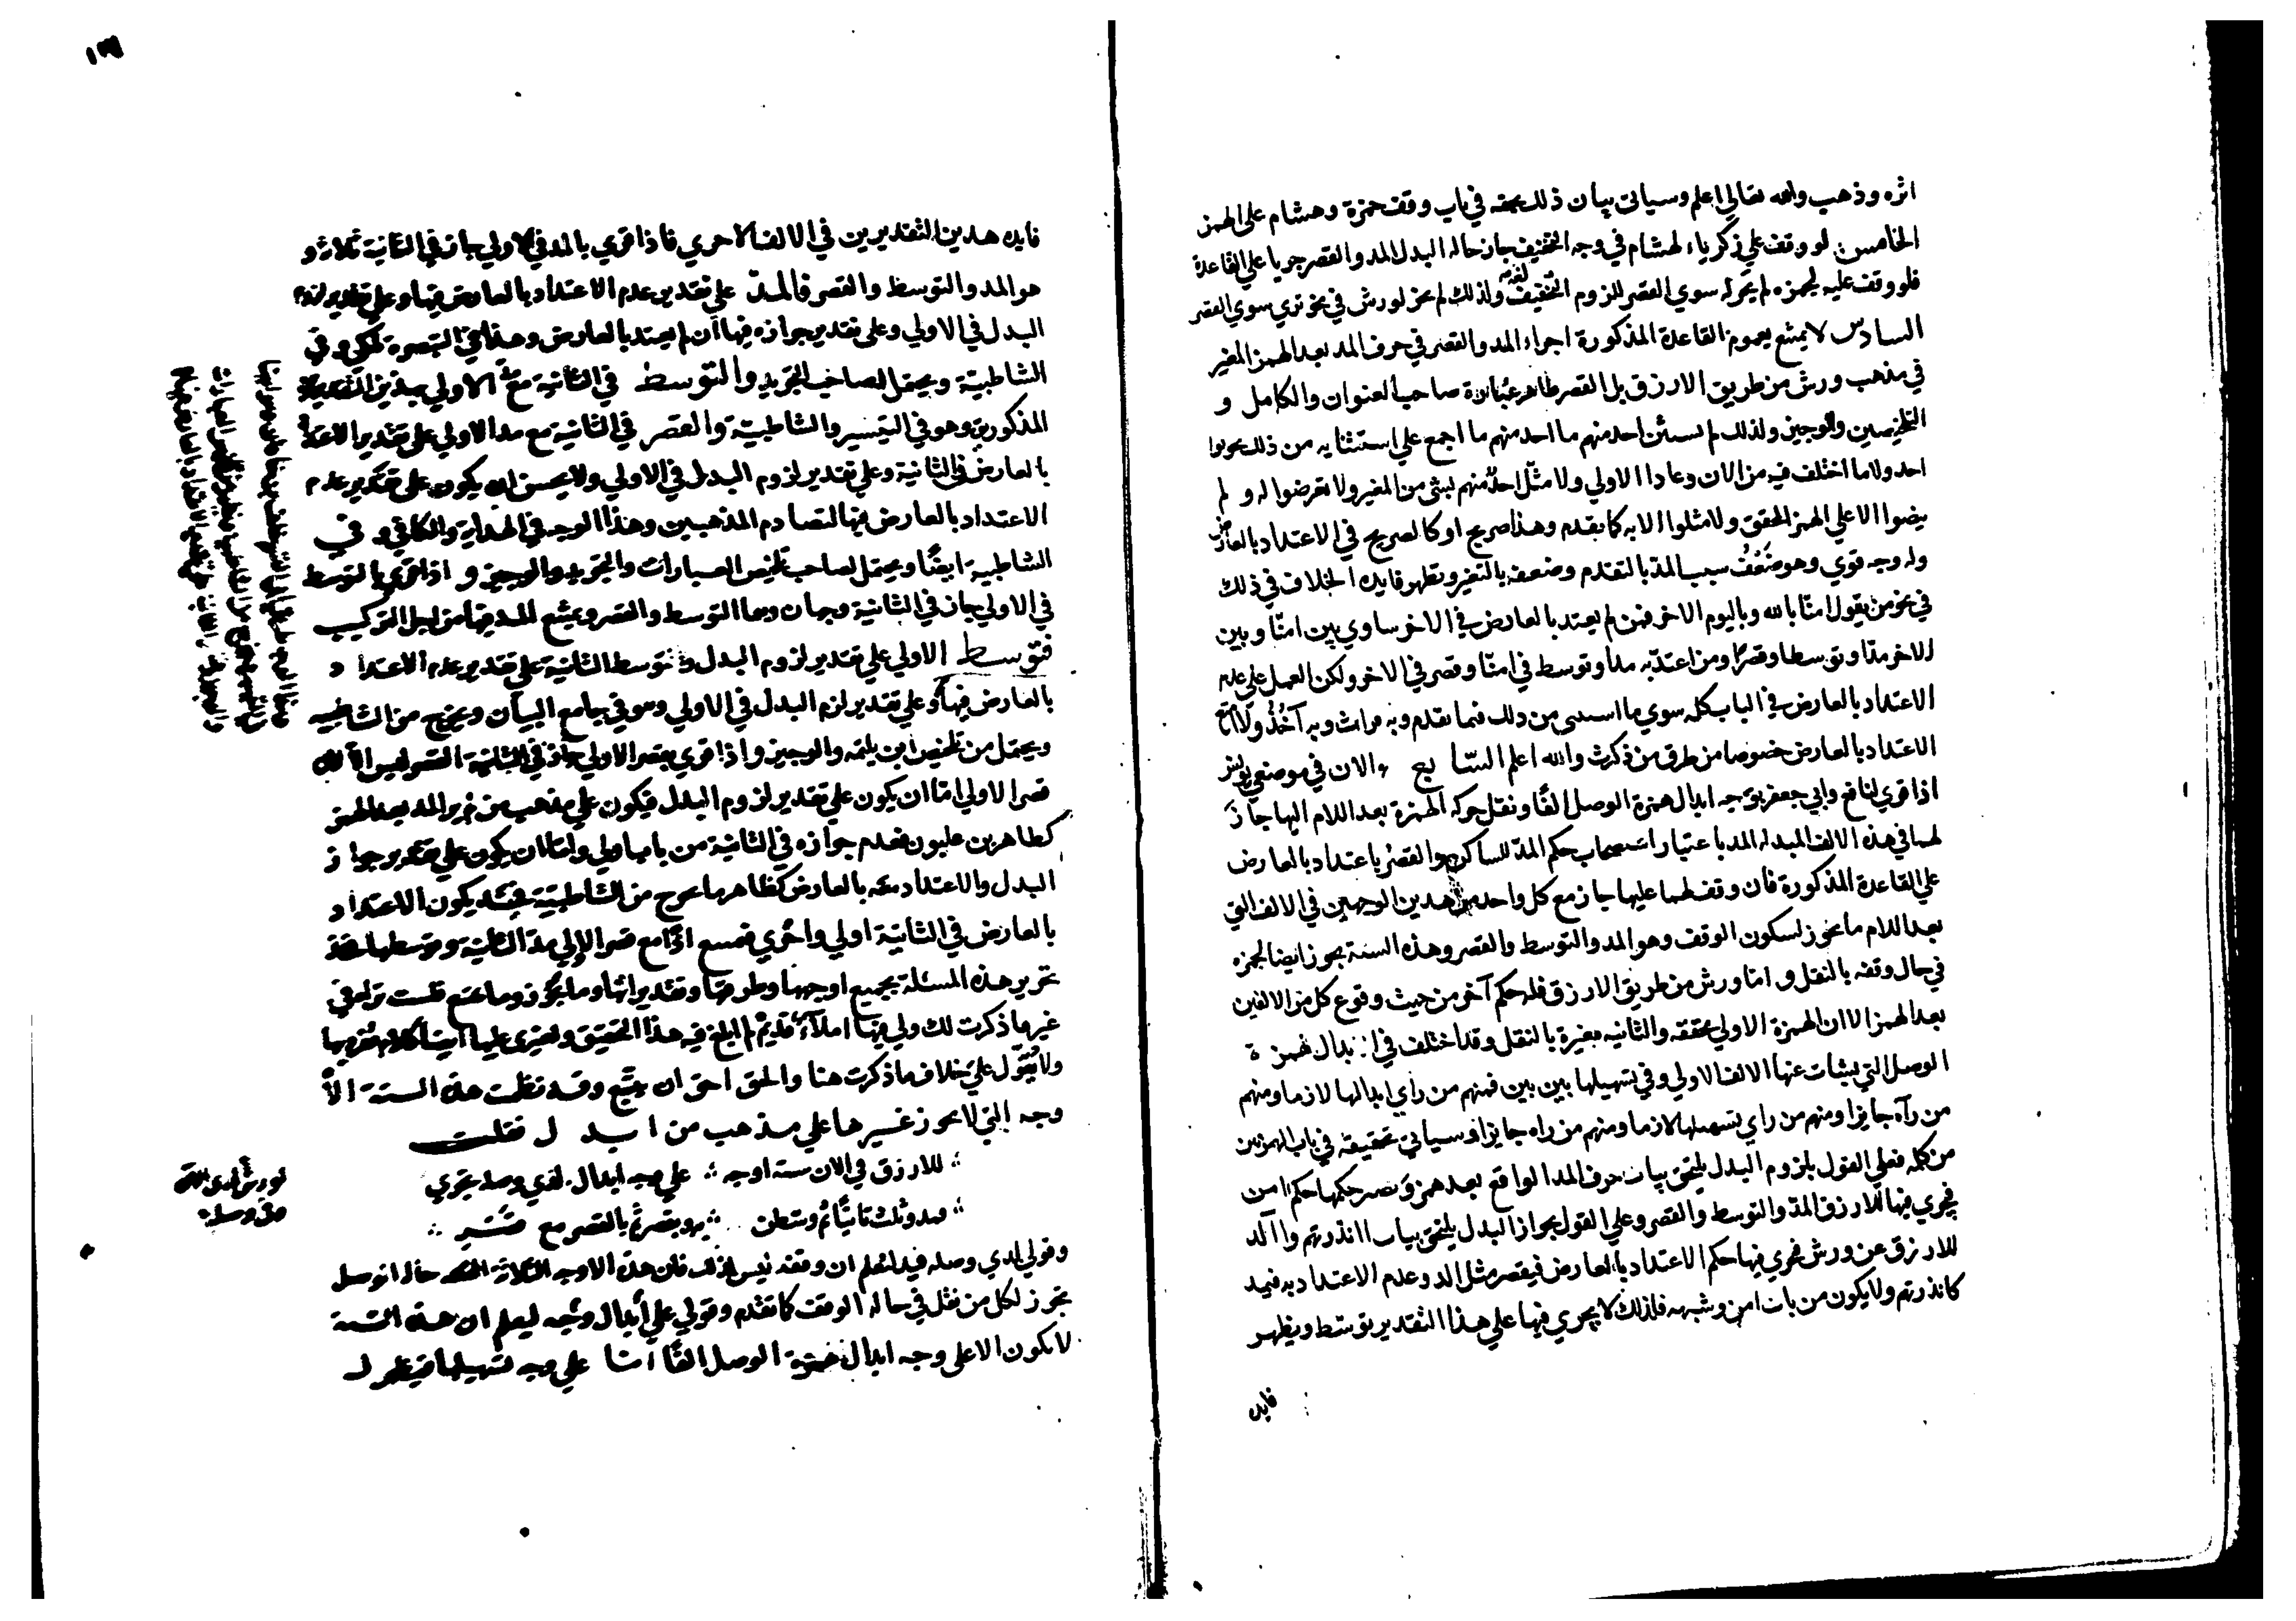 اثره وذهب والله تعالى اعلم وسياتى بيان ذلك بحقه في باب وقف حمزة وهشام على الهمز
الخامس لو وقف على زكرياء لهشام في وجه التخفيف جاز حاله البدل المد والقصر جريا على القاعدة
فلو وقف عليه لحمزه لم يجز له سوي القصر للزوم التخفيف لغة ولذلك لم يجز لورش في نحو تري سوي القصر
السادس لا يمنع بعموم القاعدة المذكورة اجراء المد والقصر في حرف المد بعد الهمز المغير
في مذهب ورش من طريق الازرق بل القصر ظاهر عبارة صاحب العنوان والكامل و
التلخيصين والوجيز ولذلك لم يستثن احد منهم ما اجمع علي استثنايه من ذلك
احد ولا ما اختلف فيه من الان وعادا الاولي ولا مثل احد منهم بشئ من المغير ولا تعرضوا له و لم
ينصوا الا علي الهمز المحقق ولا مثلوا الا به كما تقدم وهذا صريح او كالصريح في الاعتداد بالعارض
وله وجه قوي وهو ضعف سبب المد بالتقدم وضعفه بالتغير وتظهر فايدة الخلاف في ذلك
في نحو من يقول امنا بالله وباليوم الاخر فمن لم يعتد بالعارض في الاخر ساوي بين امنا وبين
الاخر مدا وتوسطا وقصرا ومن اعتد به مد او توسط في امنا وقصر في الاخر ولكن العمل علي عدم
الاعتداد بالعارض في الباب كله سوي ما استثنى من ذلك فيما تقدم وبه قرات وبه آخذ ولا امنع
الاعتداد بالعارض خصوصا من طرق من ذكرت والله اعلم السابع والان في موضعي يونس
اذا قري لنافع وابي جعفر بوجه ابدال همزة الوصل الفا ونقل حركه الهمزة بعد اللام اليها جاز
لهما في هذه الالف المبدله المد باعتبار استصحاب حكم المد للساكن والقصر باعتداد بالعارض
علي القاعدة المذكورة فان وقف لهما عليها جاز مع كل واحد من هدين الوجهين في الالف التي
بعد اللام ما يجوز لسكون الوقف وهو المد والتوسط والقصر وهذه الستة يجوز ايضا لحمزه
في حال وقفه بالنقل و اما ورش من طريق الازرق فله حكم آخر من حيث وقوع كل من الالفين
بعد الهمز الا ان الهمزة الاولي محققه والثانيه مغيرة بالنقل وقد اختلف في ابدال همزة
الوصل التي نشات عنها الالف الاولي وفي تسهيلها بين بين فمنهم من راي ابدالها لازما ومنهم
من رآه جايزا ومنهم من راي تسهيلها لازما ومنهم من راه جايزا وسياتي تحقيقه في باب الهمزتين
من كلمه فعلي القول بلزوم البدل يلتحق بباب حرف المد الواقع بعد همز ويصير حكمها حكم امن
فيجري فيها للازرق المد والتوسط والقصر وعلي القول بجواز البدل يلتحق بباب اانذرتهم وأالد
للازرق عن ورش فيجري فيها حكم الاعتداد بالعارض فيقصر مثل االد وعدم الاعتداد به فيمد
كانذرتهم ولا يكون من باب امن وشبهه فلذلك لا يجري فيها علي هذا التقدير توسط ويظهر
فايده
فايده هدين التقديرين في الالف الاخري فاذا قري بالمد في الاولي جاز في الثانية ثلاثة و
هو المد والتوسط والقصر فالمد علي تقدير عدم الاعتداد بالعارض فيها وعلي تقدير لزوم
البدل في الاولي وعلي تقدير جوازه فيها ان لم يعتد بالعارض وهذا في التبصرة لمكي وفي
الشاطبية ويحتمل لصاحب التجريد والتوسط في الثانية مع مد الاولي بهذين التقديرين
المذكورين وهو في التيسير والشاطبية والقصر في الثانية مع مد الاولي علي تقدير الاعتداد
بالعارض في الثانية وعلي تقدير لزوم البدل في الاولي ولا يحسن ان يكون علي تقدير عدم
الاعتداد بالعارض فيها لتصادم المذهبين وهذا الوجه في الهداية والكافي و في
الشاطبية ايضا ويحتمل لصاحب تلخيص العبارات والتجريد والوجيز و اذا قري بالتوسط
في الاولي جاز في الثانية وجهان وهما التوسط والقصر ويمتنع المد فيها من اجل التركيب
فتوسط الاولي علي تقدير لزوم البدل و توسط الثانية علي تقدير عدم الاعتداد
بالعارض فيها وعلي تقدير لزوم البدل في الاولي وهو في جامع البيان ويخرج من الشاطبية
ويحتمل من تلخيص ابن بليمه والوجيز واذا قري بقصر الاولي جاز في الثانية القصر ليس الا لان
قصر الاولي اما ان يكون علي تقدير لزوم البدل فيكون علي مذهب من لم ير المد بعد الهمز
كطاهر بن غلبون فعدم جوازه في الثانية من باب اولي واما ان يكون علي تقدير جواز
البدل والاعتداد معه بالعارض كظاهر ما يخرج من الشاطبية فحينئذ يكون الاعتداد
بالعارض في الثانية اولي واحري فيمتنع اذا مع قصر الاولي مد الثانية وتوسطها فخذ
تحرير هذه المسئلة بجميع اوجهها وطرقها وتقديراتها وما يجوز وما يمتنع فلست تراه في
غير ما ذكرت لك ولي فيها املاء قديم لم ابلغ فيه هذا التحقيق ولغيري عليها ايضا كلام مفرد بها
ولا يعول علي خلاف ما ذكرت هنا والحق احق ان يتبع وقد نظمت هذه الستة الا
وجه التي لا يجوز غيرها علي مذهب من ابدل فقلت
للازرق في الان ستة اوجه ∴ علي وجه ابدال لدي وصله تجري
فمد وثلث ثانيا ثم وسطن ∴ به وبقصر ثم بالقصر مع قصر
وقولي لدي وصله قيد ليعلم ان وقفه ليس كذلك فان هذه الاوجه الثلاثة حاله الوصل
يجوز لكل من نقل في حاله الوقف كما تقدم وقولي علي ابدال وجه ليعلم ان هذه الستة
لا يكون الا على وجه ابدال همزة الوصل الفا اما علي وجه تسهيلها فيظهر ل